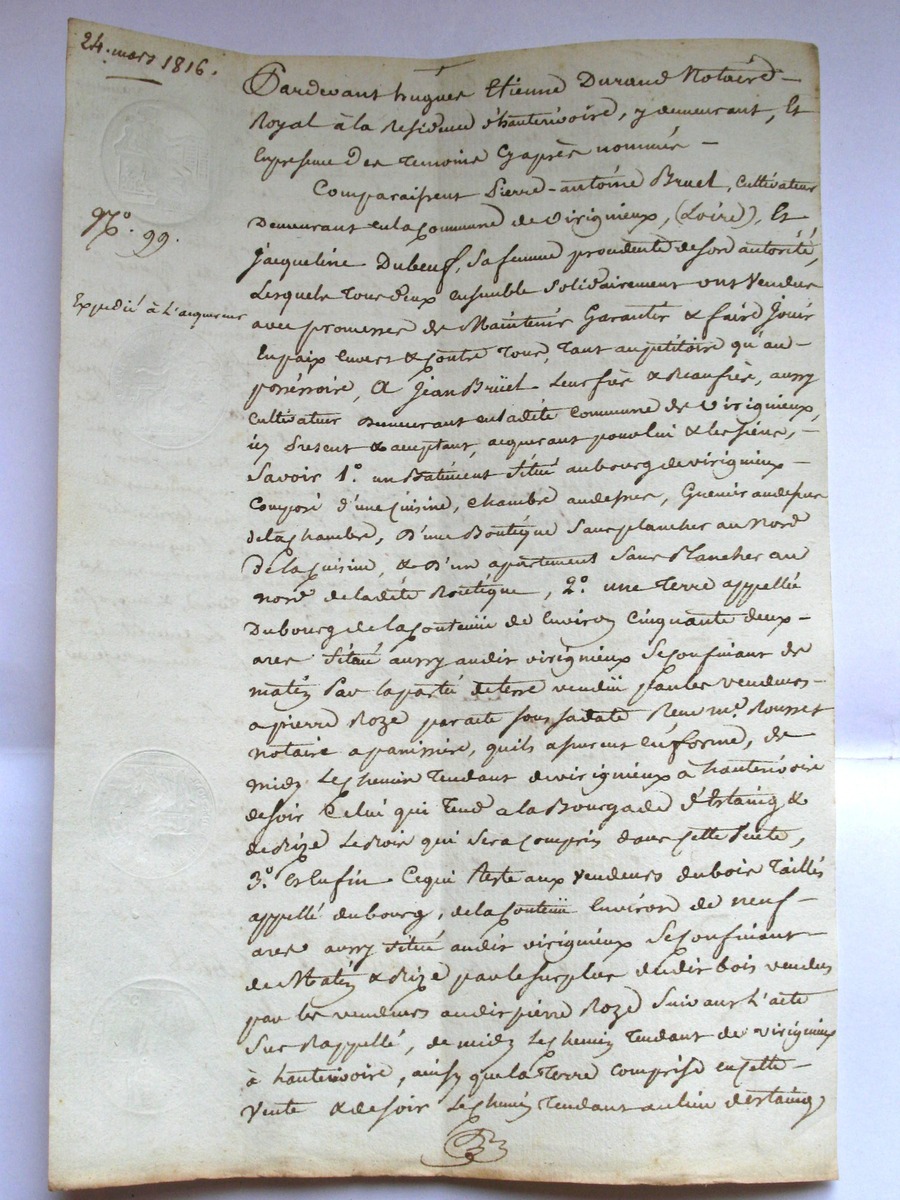 24. mars 1816.
N.º 99.
Expedié à L'acquereur
Pardevant hugues Etienne Durand Notaire
Royal à la Residence d'hauterivoire, y demeurant, Et
En presence Des Temoins Cyaprès nommés
Comparaissent Pierre-antoine Bruel, Cultivateur
Demeurant en la Commune de virigneux, (Loire), Et
Jacqueline Dubeuf, sa femme procedente de son autorité,
Lesquels Tous deux ensemble solidairement ont Vendus
avec promesses de Maintenir Garantir & faire Jouir
En paix Envers & Contre Tous, Tant au petitoire qu'au
posséssoire, A Jean Brüel Leur frère & Beaufrère, aussy
Cultivateur Demeurant en ladite Commune de virigneux,
ici Present & acceptant, acquerant pour lui & les siens,
Savoir 1º. un Batiment situé au bourg de virigneux
Composé d'une Cuisine, Chambre audessus, Grenier audessus
de la Chambre, D'une Boutique sans plancher au Nord
De la Cuisine, & D'un apartement sans Plancher au
nord de ladite Boutique, 2º. une Terre appellée
Dubourg de la Contenüe de Environ Cinquante deux
ares située aussy audit virigneux se Confinant de
matin Par la partie de terre vendüe par les vendeurs
a pierre Roze par acte sous sa date Recu mº. Rousset
notaire a panissière, quils assurent en forme, de
midy Le Chemin Tendant de virigneux à hauterivoire
de soir Celui qui Tend a la Bourgade d'Estaing &
de Bize Le Bois qui sera Compris dans Cette Vente,
3º. Et Enfin Ce qui Reste aux Vendeurs du bois Taillis
appellé dubourg, de la Contenüe Environ de neuf
ares aussy situé audit virigneux se Confinant
de Matin & Bize par le surplus dudit bois vendus
par les vendeurs audit pierre Roze suivant L'acte
sus Rappellé, de midy Le Chemin Tendant de virigneux
à hauterivoire, ainsy que la Terre Comprise en Cette
Vente & de soir Le Chemin Tendant au lieu d'Estaing